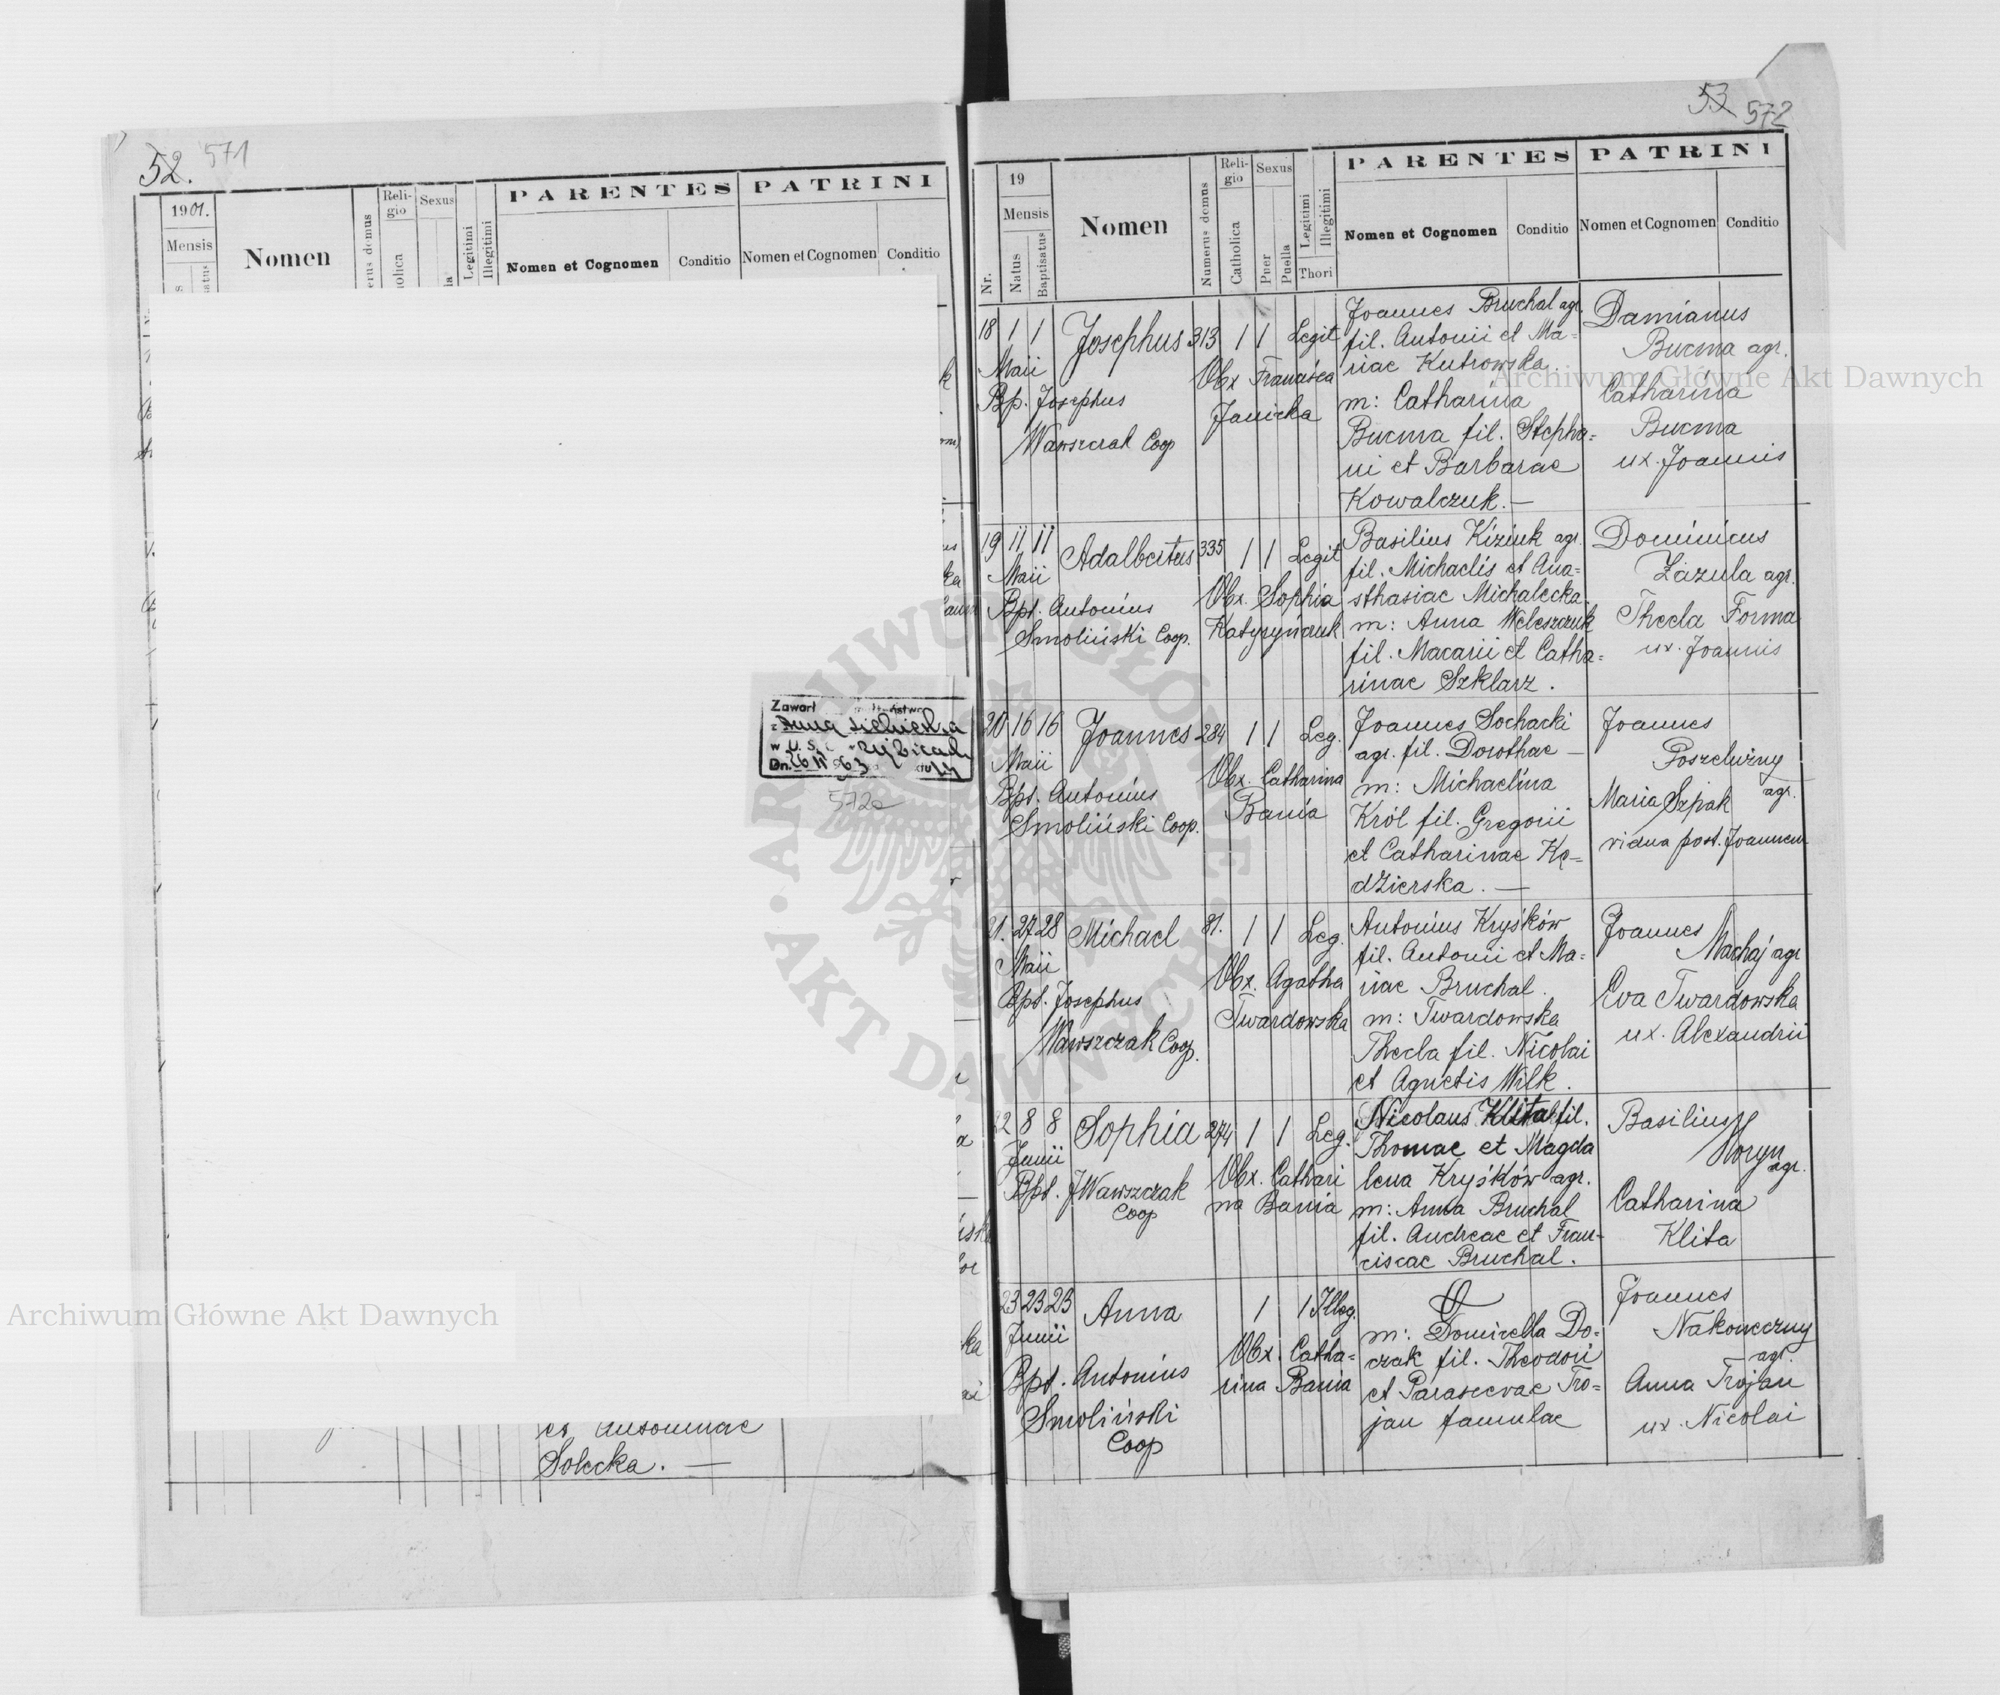 52. 571
1901.
Mensis
Nomen
Religio
Sexus
Legitimi
Illegitimi
PARENTES
PATRINI
Nomen et Cognomen
Conditio
Nomen et Cognomen
Conditio
et Antoninae
Solecka. —
Zawarł
Dn.
572a
53 572
19
Mensis
Nr.
Natus
Baptisatus
Nomen
Numerus domus
Religio
Catholica
Sexus
Puer
Puella
Legitimi
Illegitimi
Thori
PARENTES
PATRINI
Nomen et Cognomen
Conditio
Nomen et Cognomen
Conditio
18 1 1
Maii
Josephus
313 1 1 Legit
Bp. Josephus
Wawszczak Coop
Obx Francisca
Janicka
Joannes Bruchal agr.
fil. Antonii et Ma=
riae Kutrowska.
m: Catharina
Bucma fil. Stepha=
ni et Barbarae
Kowalczuk. —
Damianus
Bucma agr.
Catharina
Bucma
ux. Joannis
19 11 11
Maii
Adalbertus
335 1 1 Legit
Bpt. Antonius
Smoliński Coop.
Obx. Sophia
Katyryńczuk
Basilius Kiziuk agr.
fil. Michaelis et Ana=
sthasiae Michalecka.
m: Anna Weleszczuk
fil. Macarii et Catha=
rinae Szklarz.
Dominicus
Zazula agr.
Thecla Forma
ux. Joannis
20 16 16
Maii
Joannes
284 1 1 Leg.
Bpt. Antonius
Smoliński Coop.
Obx. Catharina
Bania
Joannes Sochacki
agr. fil. Dorothae —
m: Michaelina
Król fil. Gregorii
et Catharinae Kę=
dzierska. —
Joannes
Poszelużny
agr.
Maria Szpak
vidua post. Joannem
21. 27 28
Maii
Michael
81. 1 1 Leg.
Bpt. Josephus
Wawszczak Coop.
Obx. Agatha
Twardowska
Antonius Kryśków
fil. Antonii et Ma=
riae Bruchal.
m: Twardowska
Thecla fil. Nicolai
et Agnetis Wilk.
Joannes
Machaj agr
Eva Twardowska
ux. Alexandrii
22 8 8
Junii
Sophia
274 1 1 Leg.
Bpt. J Wawszczak
Coop
Obx. Cathari
na Bania
Nicolaus Klita fil.
Thomae et Magda
lena Kryśków agr.
m: Anna Bruchal
fil. Andreae et Fran-
ciscae Bruchal.
Basilius
Horyn
agr.
Catharina
Klita
23 23 23
Junii
Anna
1 1 Illeg.
Bpt. Antonius
Smoliński
Coop
Obx. Catha=
rina Bania
m: Domicella Do=
czak fil. Theodori
et Parascevae Tro=
jan famulae
Joannes
Nakoneczny
agr.
Anna Trojan
ux. Nicolai
Archiwum Główne Akt Dawnych
Archiwum Główne Akt Dawnych
ARCHIWUM GŁÓWNE
AKT DAWNYCH